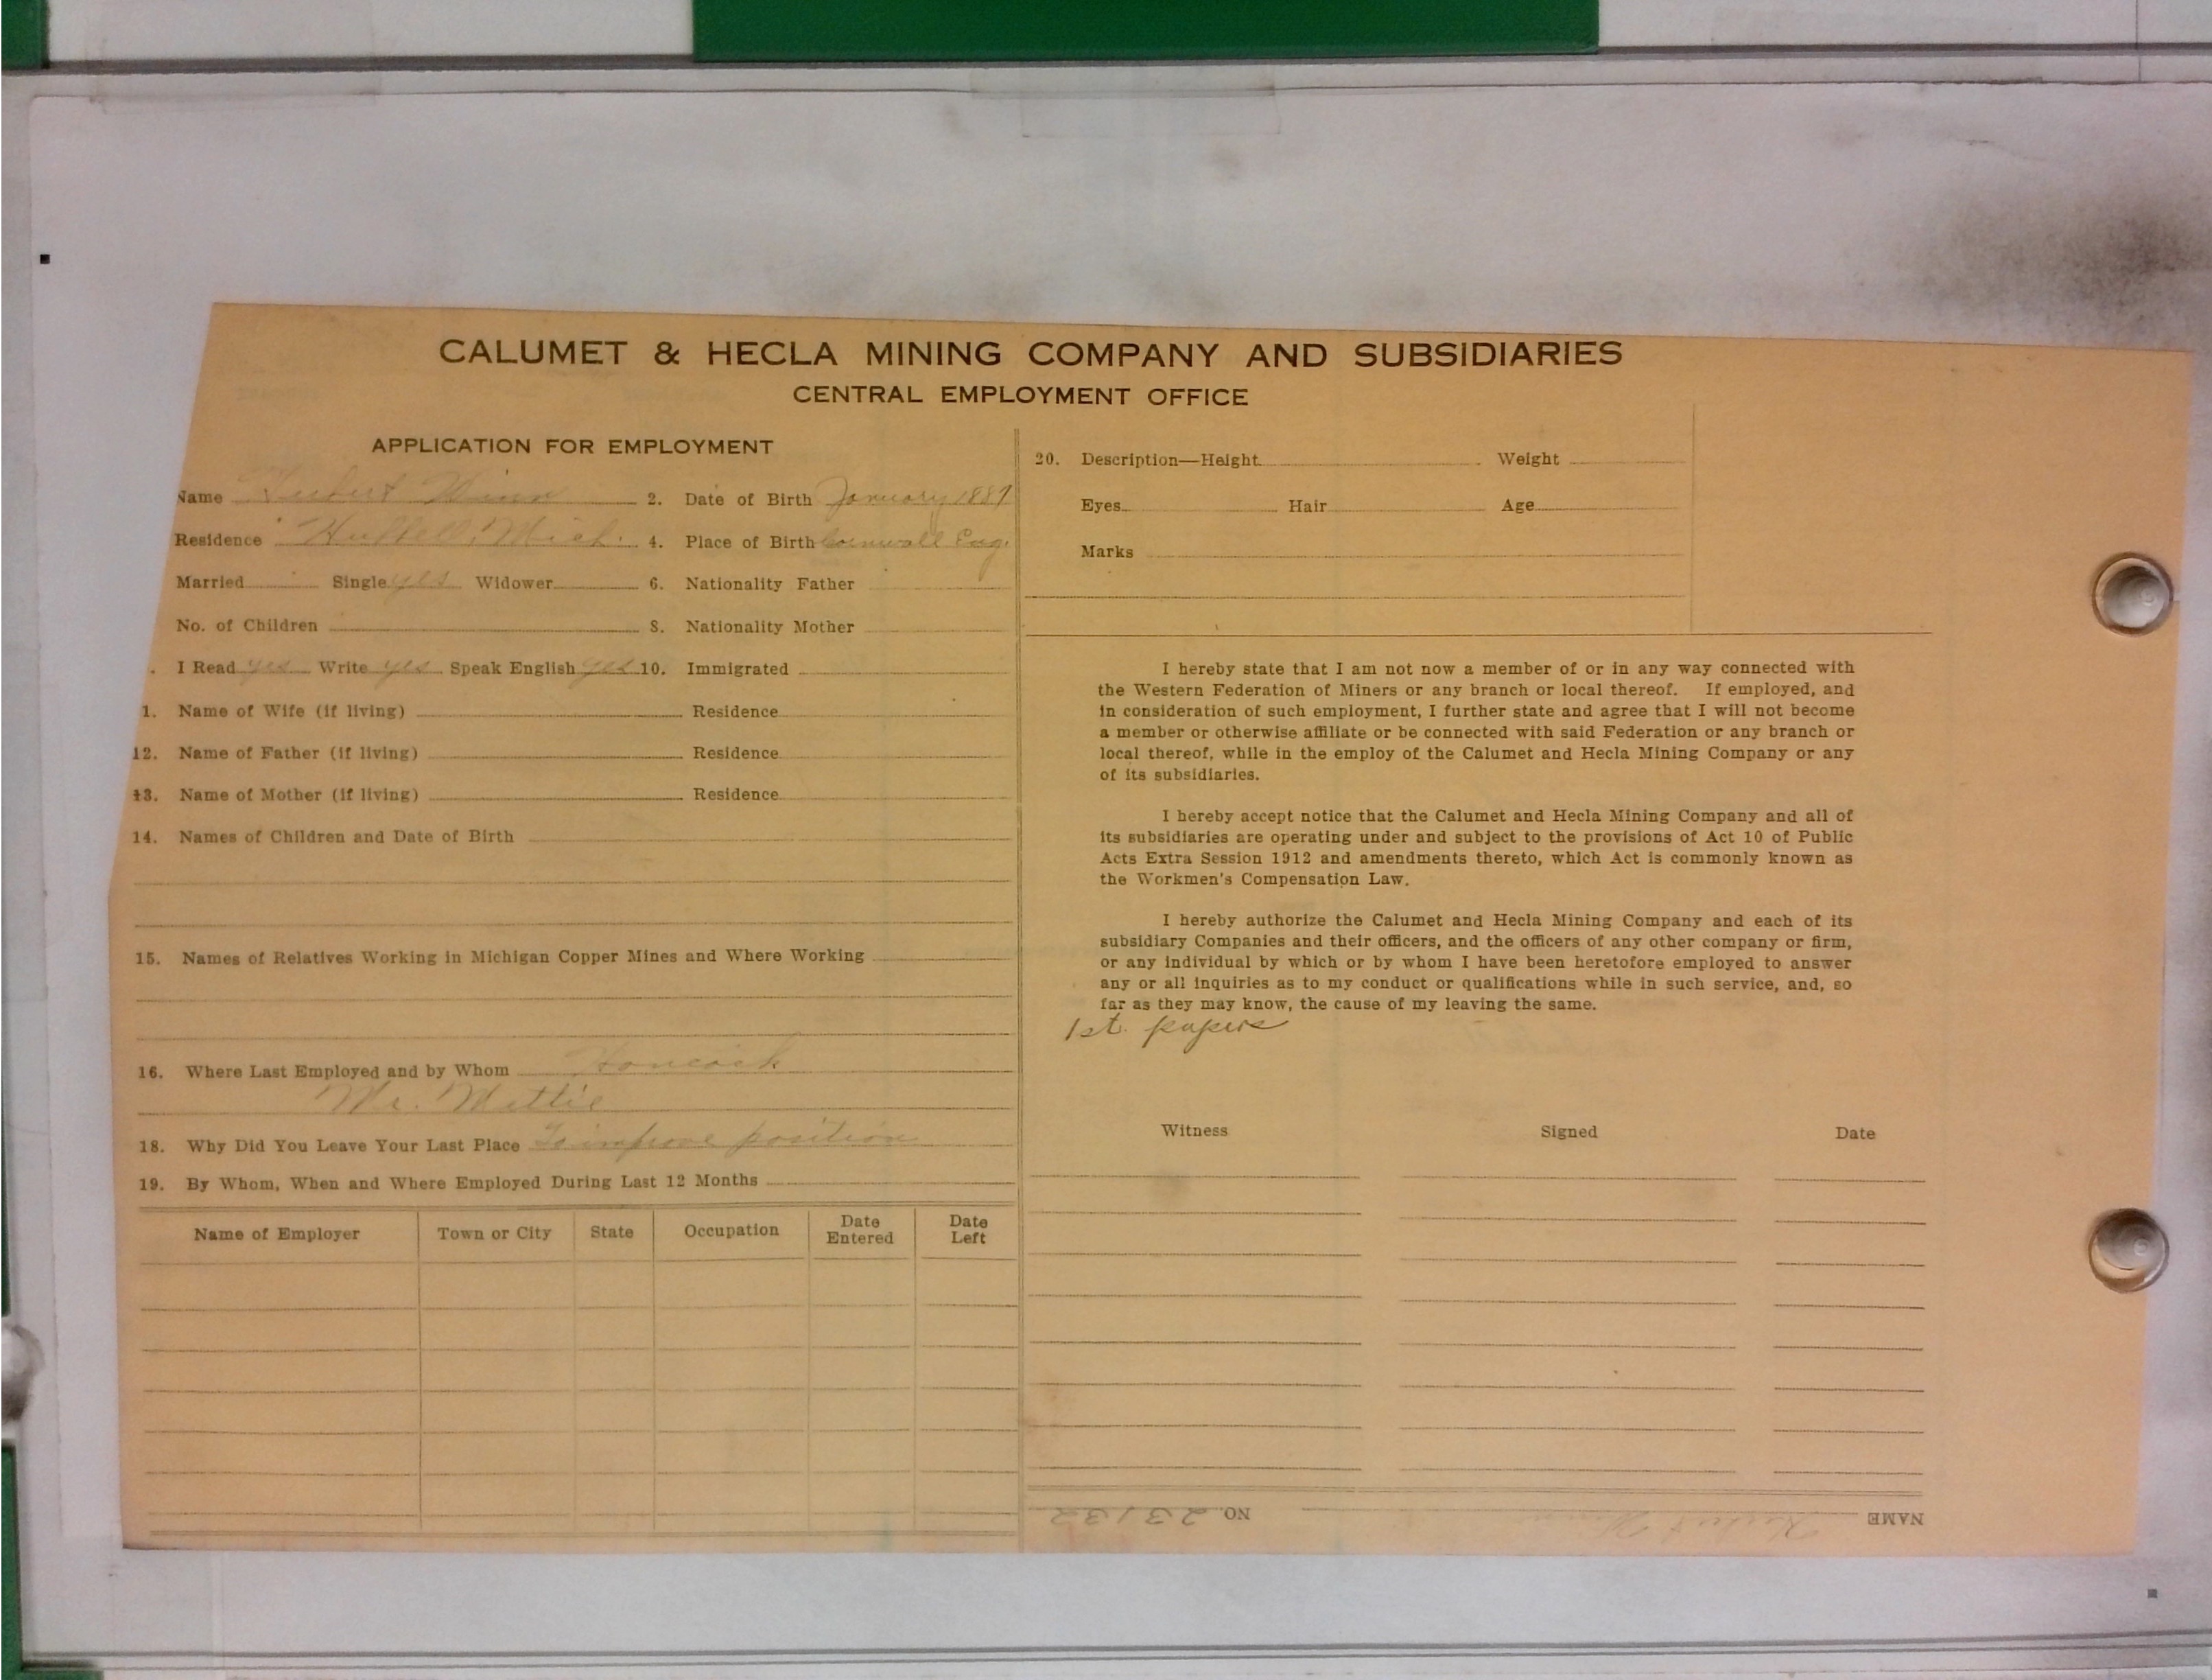 CALUMET & HECLA MINING COMPANY AND SUBSIDIARIES
CENTRAL EMPLOYMENT OFFICE
APPLICATION FOR EMPLOYMENT
Name Herbert 2. Date of Birth January 1889
Residence Hubbell, Mich. 4. Place of Birth Cornwall Eng.
Married Single yes Widower 6. Nationality Father
No. of Children 8. Nationality Mother
. I Read yes Write yes Speak English yes 10. Immigrated
1. Name of Wife (if living) Residence
12. Name of Father (if living) Residence
13. Name of Mother (if living) Residence
14. Names of Children and Date of Birth
15. Names of Relatives Working in Michigan Copper Mines and Where Working
16. Where Last Employed and by Whom Hancock
Mr.
18. Why Did You Leave Your Last Place To improve position
19. By Whom, When and Where Employed During Last 12 Months
Name of Employer Town or City State Occupation Date Entered Date Left
20. Description—Height Weight
Eyes Hair Age
Marks
I hereby state that I am not now a member of or in any way connected with
the Western Federation of Miners or any branch or local thereof. If employed, and
in consideration of such employment, I further state and agree that I will not become
a member or otherwise affiliate or be connected with said Federation or any branch or
local thereof, while in the employ of the Calumet and Hecla Mining Company or any
of its subsidiaries.
I hereby accept notice that the Calumet and Hecla Mining Company and all of
its subsidiaries are operating under and subject to the provisions of Act 10 of Public
Acts Extra Session 1912 and amendments thereto, which Act is commonly known as
the Workmen's Compensation Law.
I hereby authorize the Calumet and Hecla Mining Company and each of its
subsidiary Companies and their officers, and the officers of any other company or firm,
or any individual by which or by whom I have been heretofore employed to answer
any or all inquiries as to my conduct or qualifications while in such service, and, so
far as they may know, the cause of my leaving the same.
1st. papers
Witness Signed Date
NAME Herbert NO. 23132